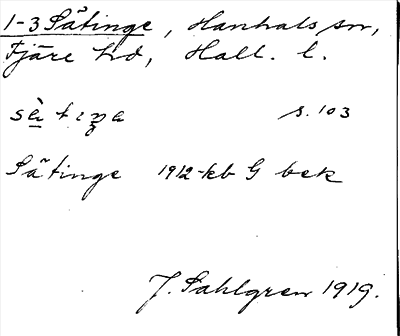 1-3 Såtinge, Hanhals sn,
Fjäre hd, Hall. l.
s. 103
Såtinge 1912-kb G bek
J. Sahlgren 1919.